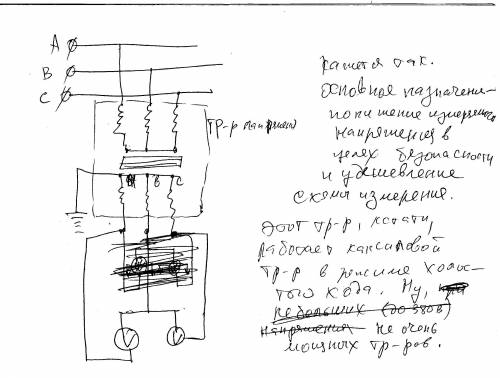 A
B
C
ТР-р напряжен
А В С
V V
кажется так.
основное назначение-
понижение измеряемого
напряжения в
целях безопасности
и удешевление
схемы измерения.
этот тр-р, кстати,
работает как силовой
тр-р в режиме холос-
того хода. Ну,
небольших (до 380в)
напряжения не очень
мощных тр-ров.